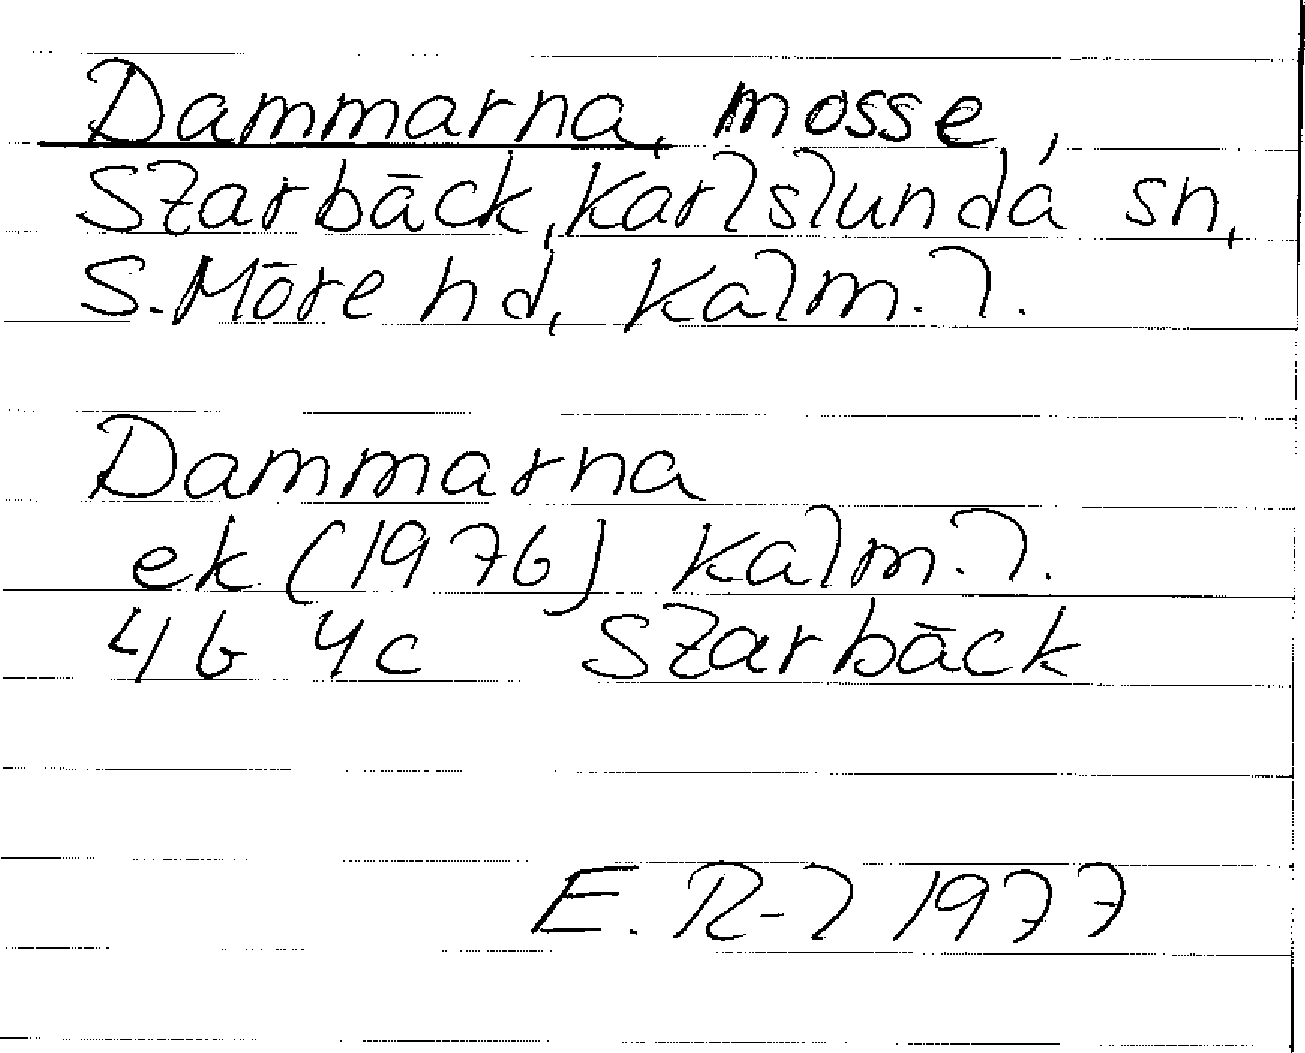 Dammarna, mosse,
Starbäck, Karlslunda sn,
S. Möre hd, Kalm. l.
Dammarna
ek (1976) Kalm. l.
4G 4c Starbäck
E. R-l 1977